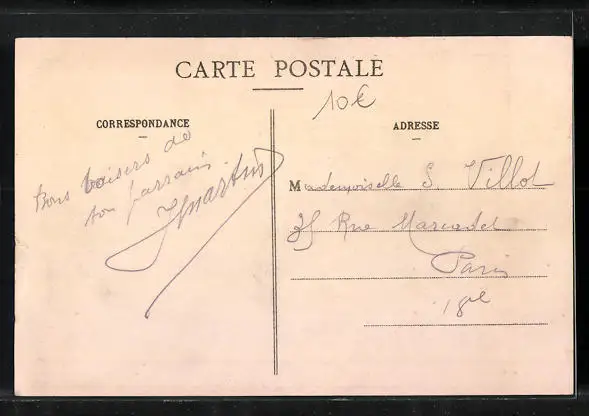 CARTE POSTALE
10€
CORRESPONDANCE
Bons baisers de
ton parrain
Martin
ADRESSE
Mademoiselle S. Villot
35 Rue Marcadet
Paris
18e